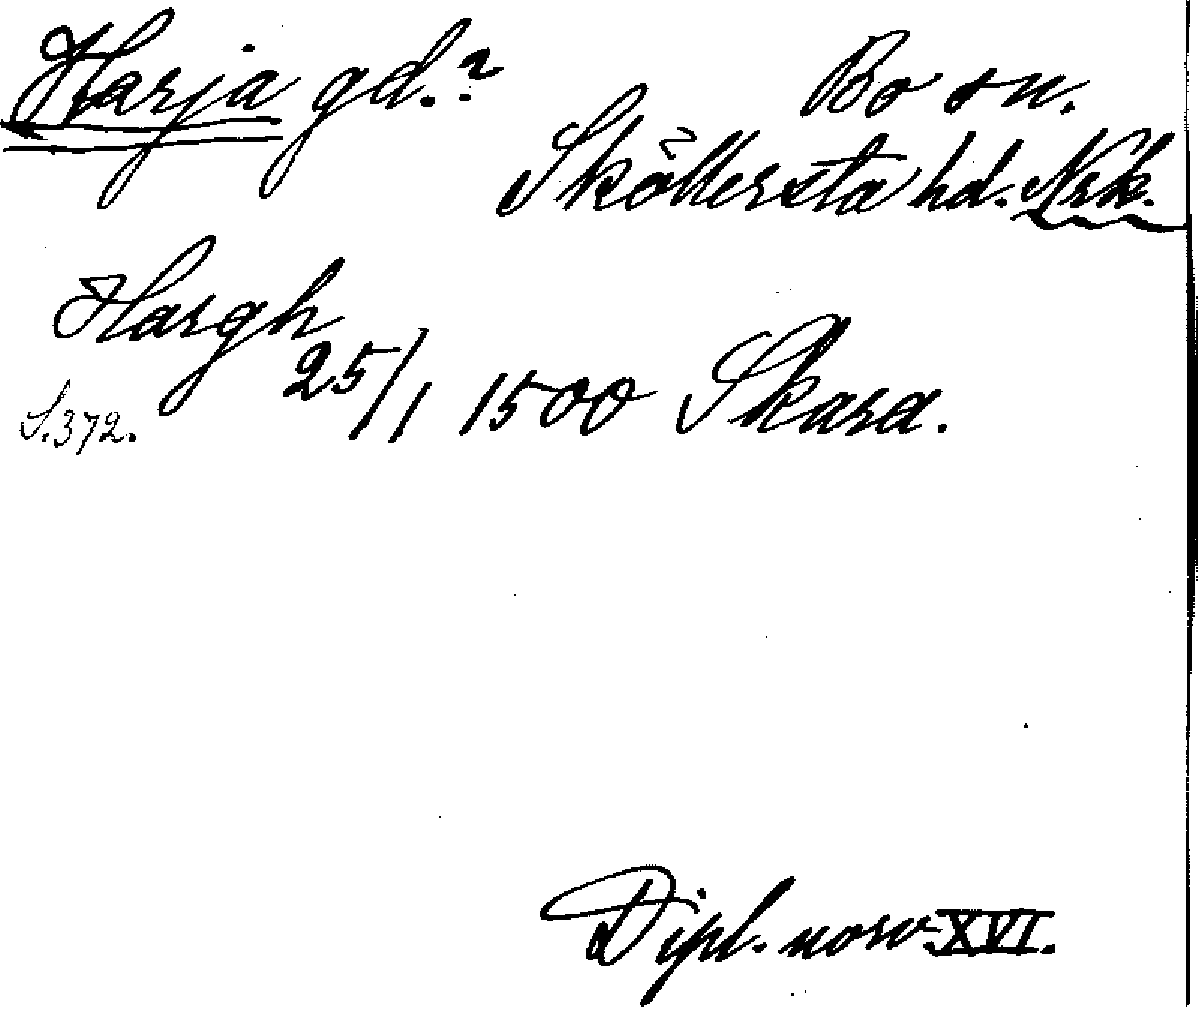 Harja gd.? Bo sn.
Sköllersta hd. Nrk.
Hargh
25/1 1500 Skara.
S.372.
Dipl. norv. XVI.